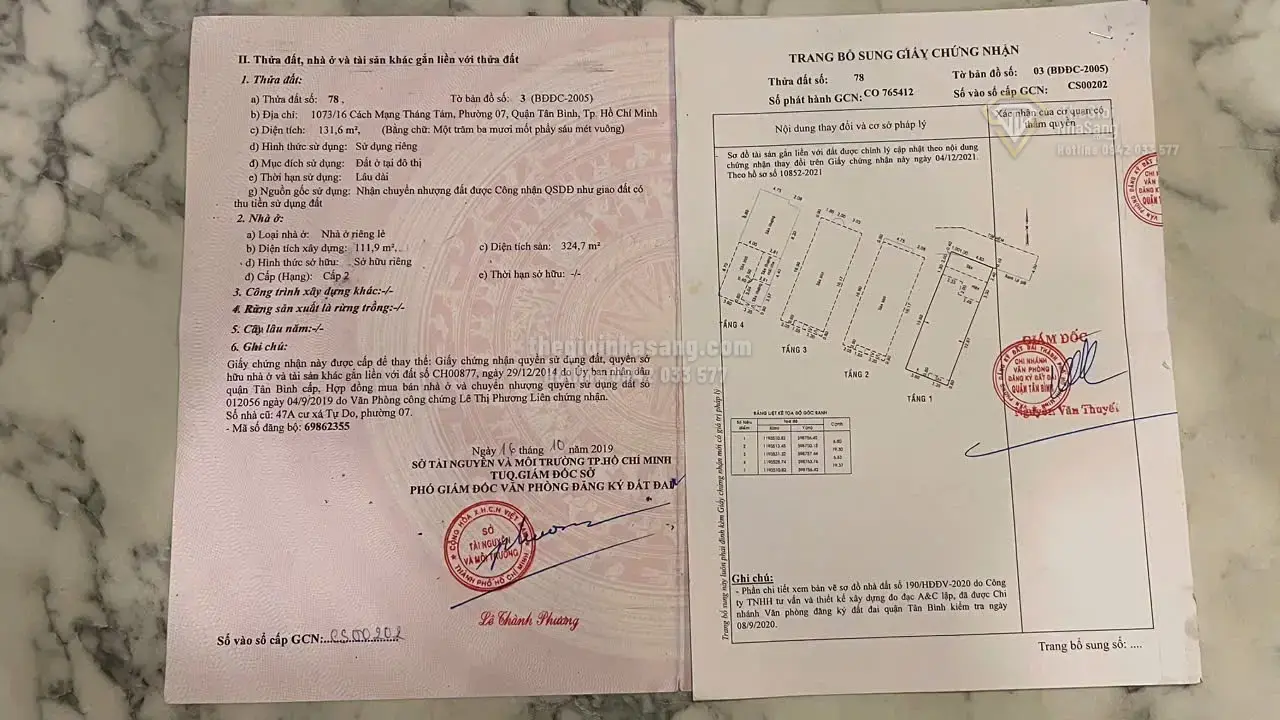 II. Thửa đất, nhà ở và tài sản khác gắn liền với thửa đất
1. Thửa đất:
a) Thửa đất số: 78 , Tờ bản đồ số: 3 (BĐĐC-2005)
b) Địa chỉ: 1073/16 Cách Mạng Tháng Tám, Phường 07, Quận Tân Bình, Tp. Hồ Chí Minh
c) Diện tích: 131,6 m², (Bằng chữ: Một trăm ba mươi mốt phẩy sáu mét vuông)
d) Hình thức sử dụng: Sử dụng riêng
đ) Mục đích sử dụng: Đất ở tại đô thị
e) Thời hạn sử dụng: Lâu dài
g) Nguồn gốc sử dụng: Nhận chuyển nhượng đất được Công nhận QSDĐ như giao đất có
thu tiền sử dụng đất
2. Nhà ở:
a) Loại nhà ở: Nhà ở riêng lẻ
b) Diện tích xây dựng: 111,9 m², c) Diện tích sàn: 324,7 m²
d) Hình thức sở hữu: Sở hữu riêng
đ) Cấp (Hạng): Cấp 2 e) Thời hạn sở hữu: -/-
3. Công trình xây dựng khác:-/-
4. Rừng sản xuất là rừng trồng:-/-
5. Cây lâu năm:-/-
6. Ghi chú:
Giấy chứng nhận này được cấp để thay thế: Giấy chứng nhận quyền sử dụng đất, quyền sở
hữu nhà ở và tài sản khác gắn liền với đất số CH00877, ngày 29/12/2014 do Ủy ban nhân dân
quận Tân Bình cấp, Hợp đồng mua bán nhà ở và chuyển nhượng quyền sử dụng đất số
012056 ngày 04/9/2019 do Văn Phòng công chứng Lê Thị Phương Liên chứng nhận.
Số nhà cũ: 47A cư xá Tự Do, phường 07.
- Mã số đăng bộ: 69862355
Ngày 16 tháng 10 năm 2019
SỞ TÀI NGUYÊN VÀ MÔI TRƯỜNG TP.HỒ CHÍ MINH
TUQ.GIÁM ĐỐC SỞ
PHÓ GIÁM ĐỐC VĂN PHÒNG ĐĂNG KÝ ĐẤT ĐAI
CỘNG HÒA X.H.C.N VIỆT NAM
SỞ
TÀI NGUYÊN
VÀ MÔI TRƯỜNG
THÀNH PHỐ HỒ CHÍ MINH
Lê Thành Phương
Số vào sổ cấp GCN: CS00202
thegioinhasang.com
033 577
TRANG BỔ SUNG GIẤY CHỨNG NHẬN
Thửa đất số: 78 Tờ bản đồ số: 03 (BĐĐC-2005)
Số phát hành GCN: CO 765412 Số vào sổ cấp GCN: CS00202
Nội dung thay đổi và cơ sở pháp lý
Xác nhận của cơ quan có
thẩm quyền
nhaSang
Hotline 0942 033 577
Sơ đồ tài sản gắn liền với đất được chỉnh lý cập nhật theo nội dung
chứng nhận thay đổi trên Giấy chứng nhận này ngày 04/12/2021.
Theo hồ sơ 10852-2021
TẦNG 4
TẦNG 3
TẦNG 2
TẦNG 1
BẢNG LIỆT KÊ TỌA ĐỘ GÓC RANH
GIÁM ĐỐC
CHI NHÁNH
VĂN PHÒNG
ĐĂNG KÝ ĐẤT ĐAI
QUẬN TÂN BÌNH
Nguyễn Văn Thuyết
Trang bổ sung này luôn phải đính kèm Giấy chứng nhận mới có giá trị pháp lý
Ghi chú:
- Phần chi tiết xem bản vẽ sơ đồ nhà đất số 190/HĐĐV-2020 do Công
ty TNHH tư vấn và thiết kế xây dựng đo đạc A&C lập, đã được Chi
nhánh Văn phòng đăng ký đất đai quận Tân Bình kiểm tra ngày
08/9/2020.
Trang bổ sung số: ....